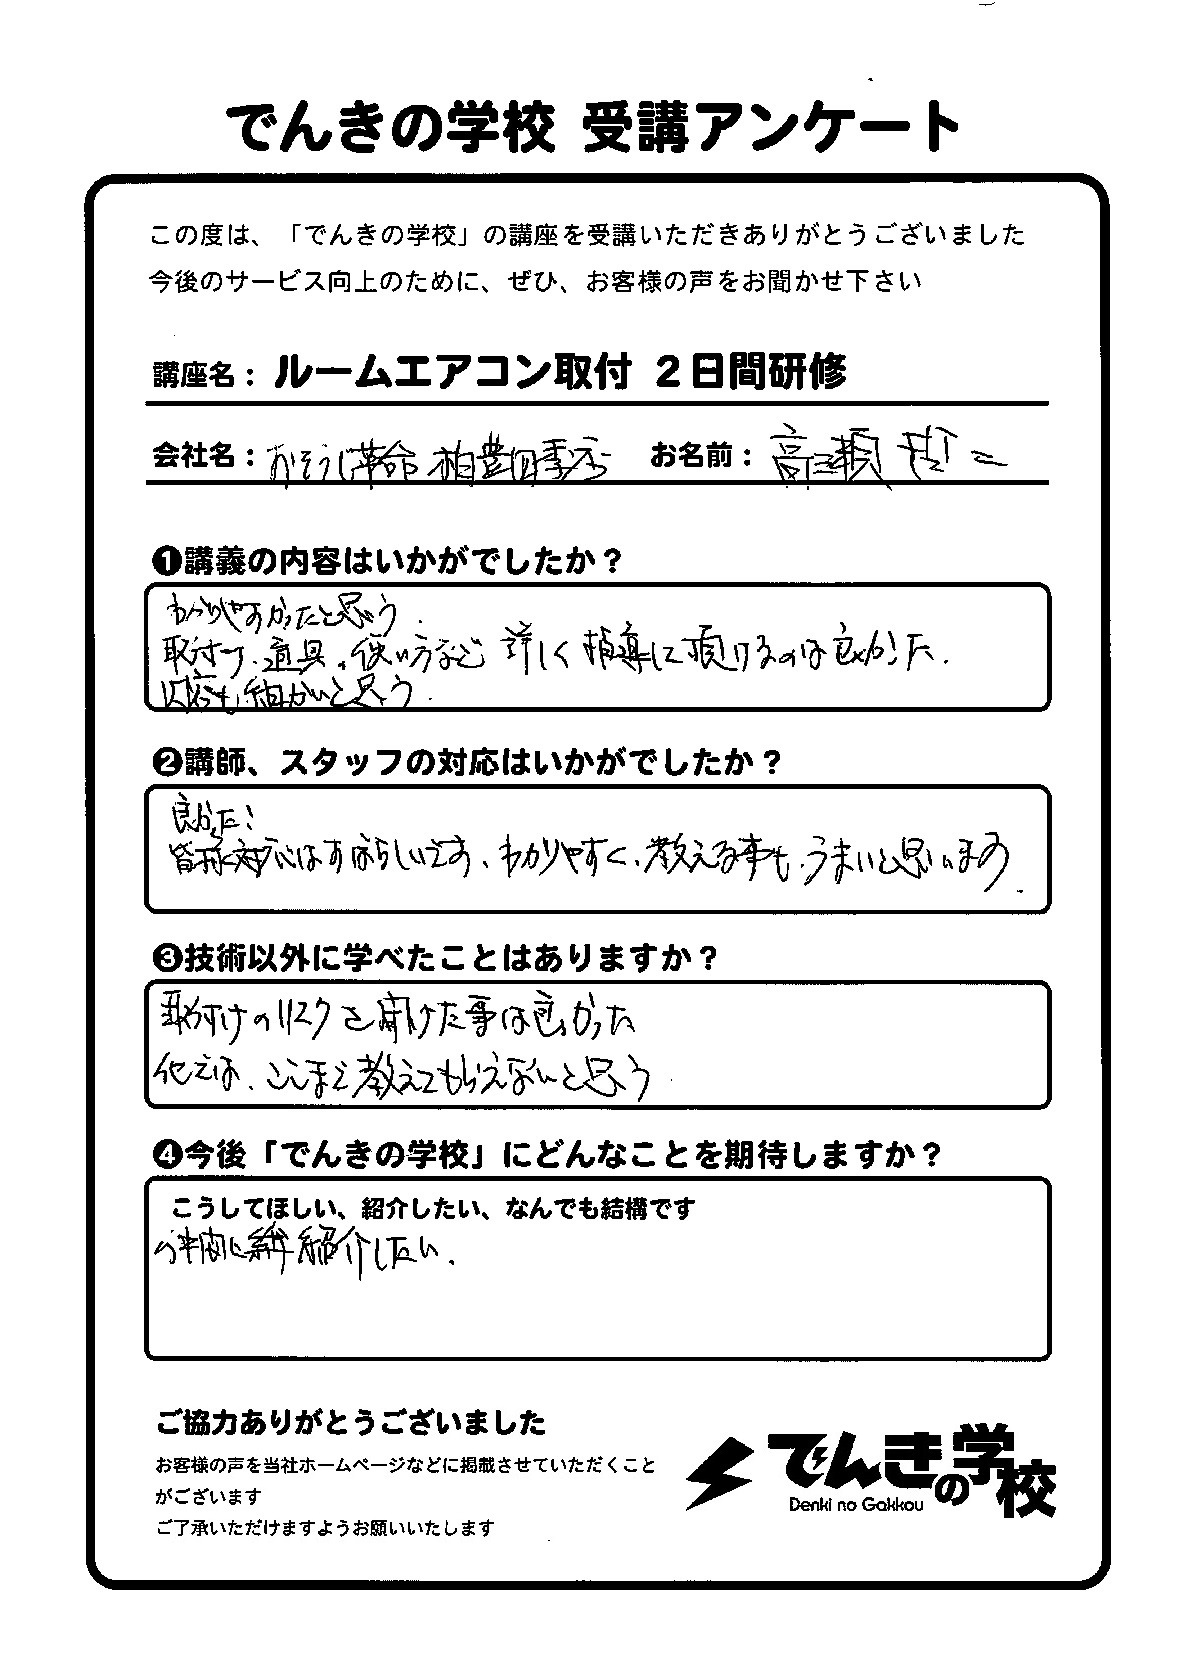 でんきの学校 受講アンケート
この度は、「でんきの学校」の講座を受講いただきありがとうございました
今後のサービス向上のために、ぜひ、お客様の声をお聞かせ下さい
講座名: ルームエアコン取付 2日間研修
会社名: おそうじ革命 柏豊四季店 お名前: 高瀬 哲二
❶講義の内容はいかがでしたか?
わかりやすかったと思う.
取付け、道具の使い方など 詳しく指導して頂けるのは良かった.
内容も細かいと思う.
❷講師、スタッフの対応はいかがでしたか?
良かった!
皆様対応はすばらしいです、わかりやすく、教える事も、うまいと思います.
❸技術以外に学べたことはありますか?
取付けのリスクを聞けた事は良かった
他では、ここまで教えてもらえないと思う
❹今後「でんきの学校」にどんなことを期待しますか?
こうしてほしい、紹介したい、なんでも結構です
紹介したい.
ご協力ありがとうございました
お客様の声を当社ホームページなどに掲載させていただくこと
がございます
ご了承いただけますようお願いいたします
でんきの学校
Denki no Gakkou